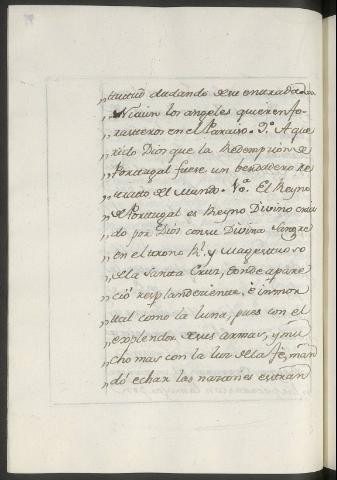 „tuuo dudando de su entrada.
„Ni aun los angeles quieren fo-
„rasteros en el Paraiso. 3º A que-
„rido Dios que la Redempcion de
„Portugal fuese un berdadero re
„trato del Mundo. Vª El Reyno
„de Portugal es Reyno Divino cria
„do por Dios con su Divina Sangre
„en el trono Rl. y Magestuoso
„de la Santa Cruz, donde apare
„cio resplandeciente, è inmor
„tal como la luna, pues con el
„explendor de sus armas, y mu
„cho mas con la luz de la fè, man
„dó echar las naciones estran